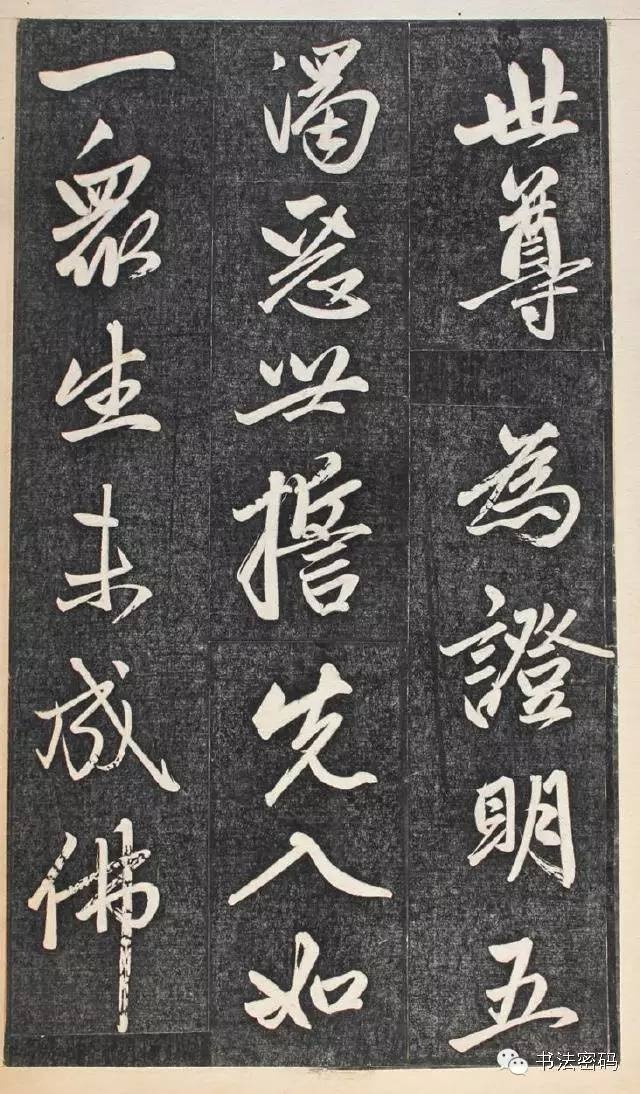 世尊為證明五
濁惡世誓先入如
一眾生未成佛
书法密码